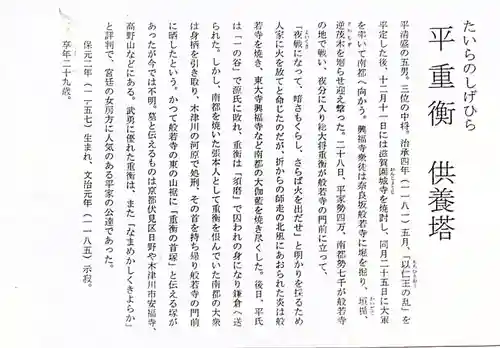 たいらのしげひら
平重衡 供養塔
平清盛の五男。三位の中将。治承四年(一一八一)五月、「以仁王の乱」を
平定した後、十二月十一日には滋賀園城寺を焼討し、同月二十五日に大軍
を率いて南都へ向かう。興福寺衆徒は奈良坂般若寺に堀を掘り、垣楯、
逆茂木を廻らせ迎え撃った。二十八日、平家勢四万、南都勢七千が般若寺
の地で戦い、夜分に入り総大将重衡が般若寺の門前に立って、
「夜戦になって、暗さもくらし、さらば火を出だせ」と明かりを採るため
人家に火を放てと命じたのだが、折からの師走の北風にあおられた炎は般
若寺を焼き、東大寺興福寺など南都の大伽藍を焼き尽くした。後日、平氏
は「一の谷」で源氏に敗れ、重衡は「須磨」で囚われの身になり鎌倉へ送
られた。しかし、南都を焼いた張本人として重衡を恨んでいた南都の大衆
は身柄を引き取り、木津川の河原で処刑、その首を持ち帰り般若寺の門前
に晒したという。かつて般若寺の東の山裾に「重衡の首塚」と伝える塚が
あったが今では不明。墓と伝えるものは京都伏見区日野や木津川市安福寺、
高野山などにある。武勇に優れた重衡は、また「なまめかしくきよらか」
と評判で、宮廷の女房方に人気のある平家の公達であった。
保元二年(一一五七)生まれ、文治元年(一一八五)示寂。
享年二十九歳。